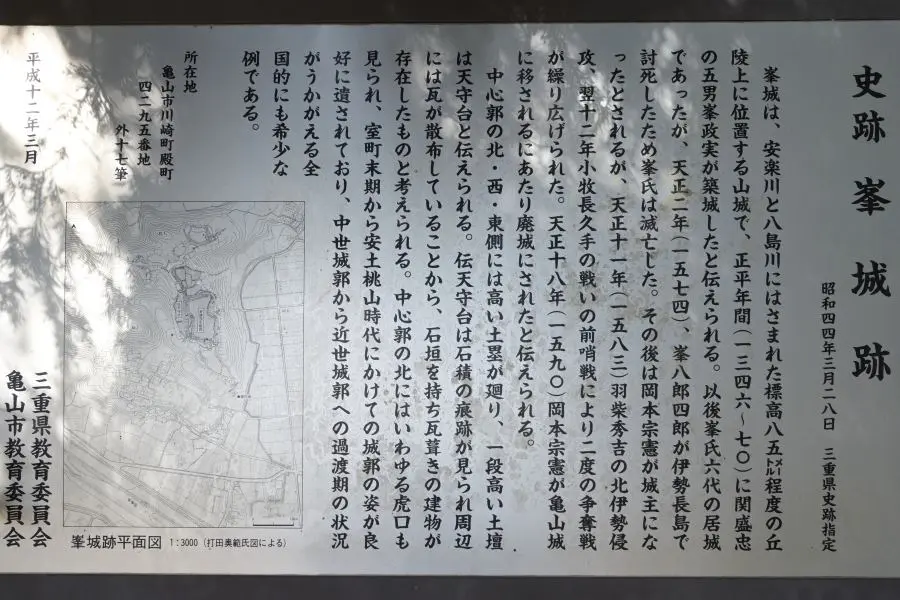 史跡 峯城跡
昭和四四年三月二八日 三重県史跡指定
峯城は、安楽川と八島川にはさまれた標高八五㍍程度の丘
陵上に位置する山城で、正平年間(一三四六～七〇)に関盛忠
の五男峯政実が築城したと伝えられる。以後峯氏六代の居城
であったが、天正二年(一五七四)、峯八郎四郎が伊勢長島で
討死したため峯氏は滅亡した。その後は岡本宗憲が城主にな
ったとされるが、天正十一年(一五八三)羽柴秀吉の北伊勢侵
攻、翌十二年小牧長久手の戦いの前哨戦により二度の争奪戦
が繰り広げられた。天正十八年(一五九〇)岡本宗憲が亀山城
に移されるにあたり廃城にされたと伝えられる。
中心郭の北・西・東側には高い土塁が廻り、一段高い土壇
は天守台と伝えられる。伝天守台は石積の痕跡が見られ周辺
には瓦が散布していることから、石垣を持ち瓦葺きの建物が
存在したものと考えられる。中心郭の北にはいわゆる虎口も
見られ、室町末期から安土桃山時代にかけての城郭の姿が良
好に遺されており、中世城郭から近世城郭への過渡期の状況
がうかがえる全
国的にも希少な
例である。
所在地
亀山市川崎町殿町
四二九五番地
外十七筆
平成十二年三月
三重県教育委員会
亀山市教育委員会
峯城跡平面図 1:3000 (打田奥範氏図による)